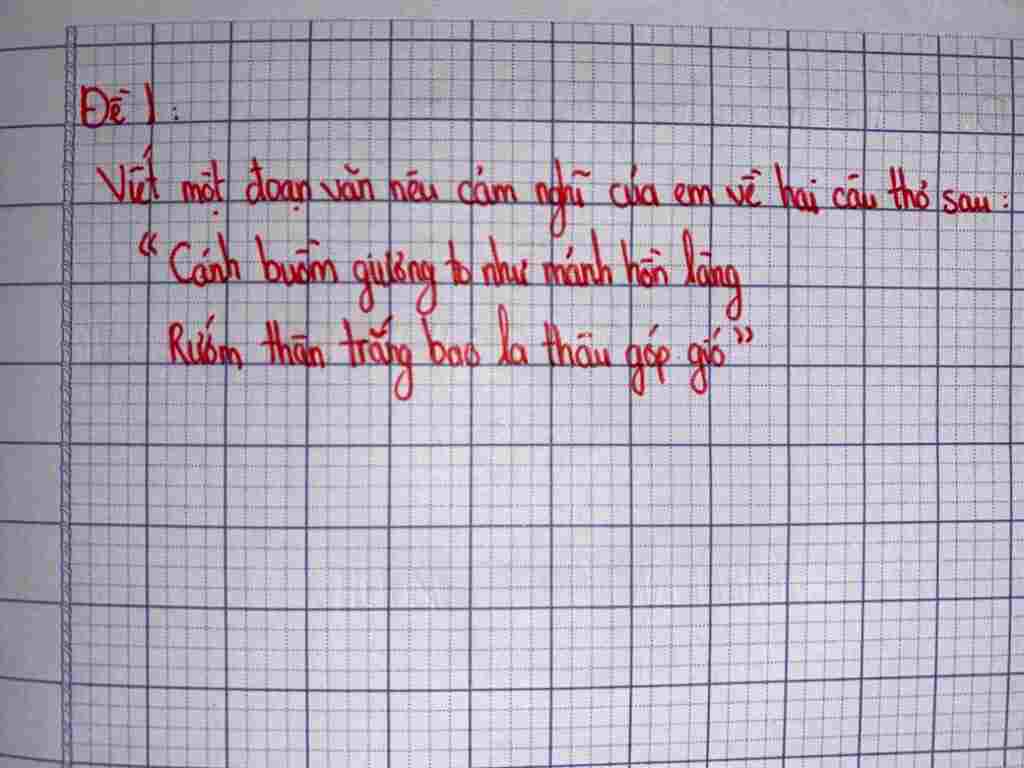 Đề 1:
Viết một đoạn văn nêu cảm nghĩ của em về hai câu thơ sau:
“Cánh buồm giương to như mảnh hồn làng
Rướm thân trắng bao la thâu góp gió”